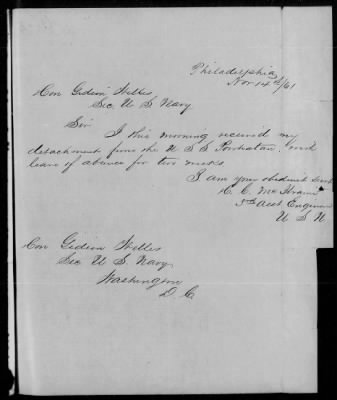 Philadelphia
Nov 14th/61
Hon Gideon Welles
Sec U S Navy
Sir
I this morning received my
detachment from the U S S Powhatan, with
leave of absence for two weeks
I am your obedient Servt
C. C. Mc
3rd Asst Engineer
U S N
Hon Gideon Welles
Sec U. S. Navy
Washington
D. C